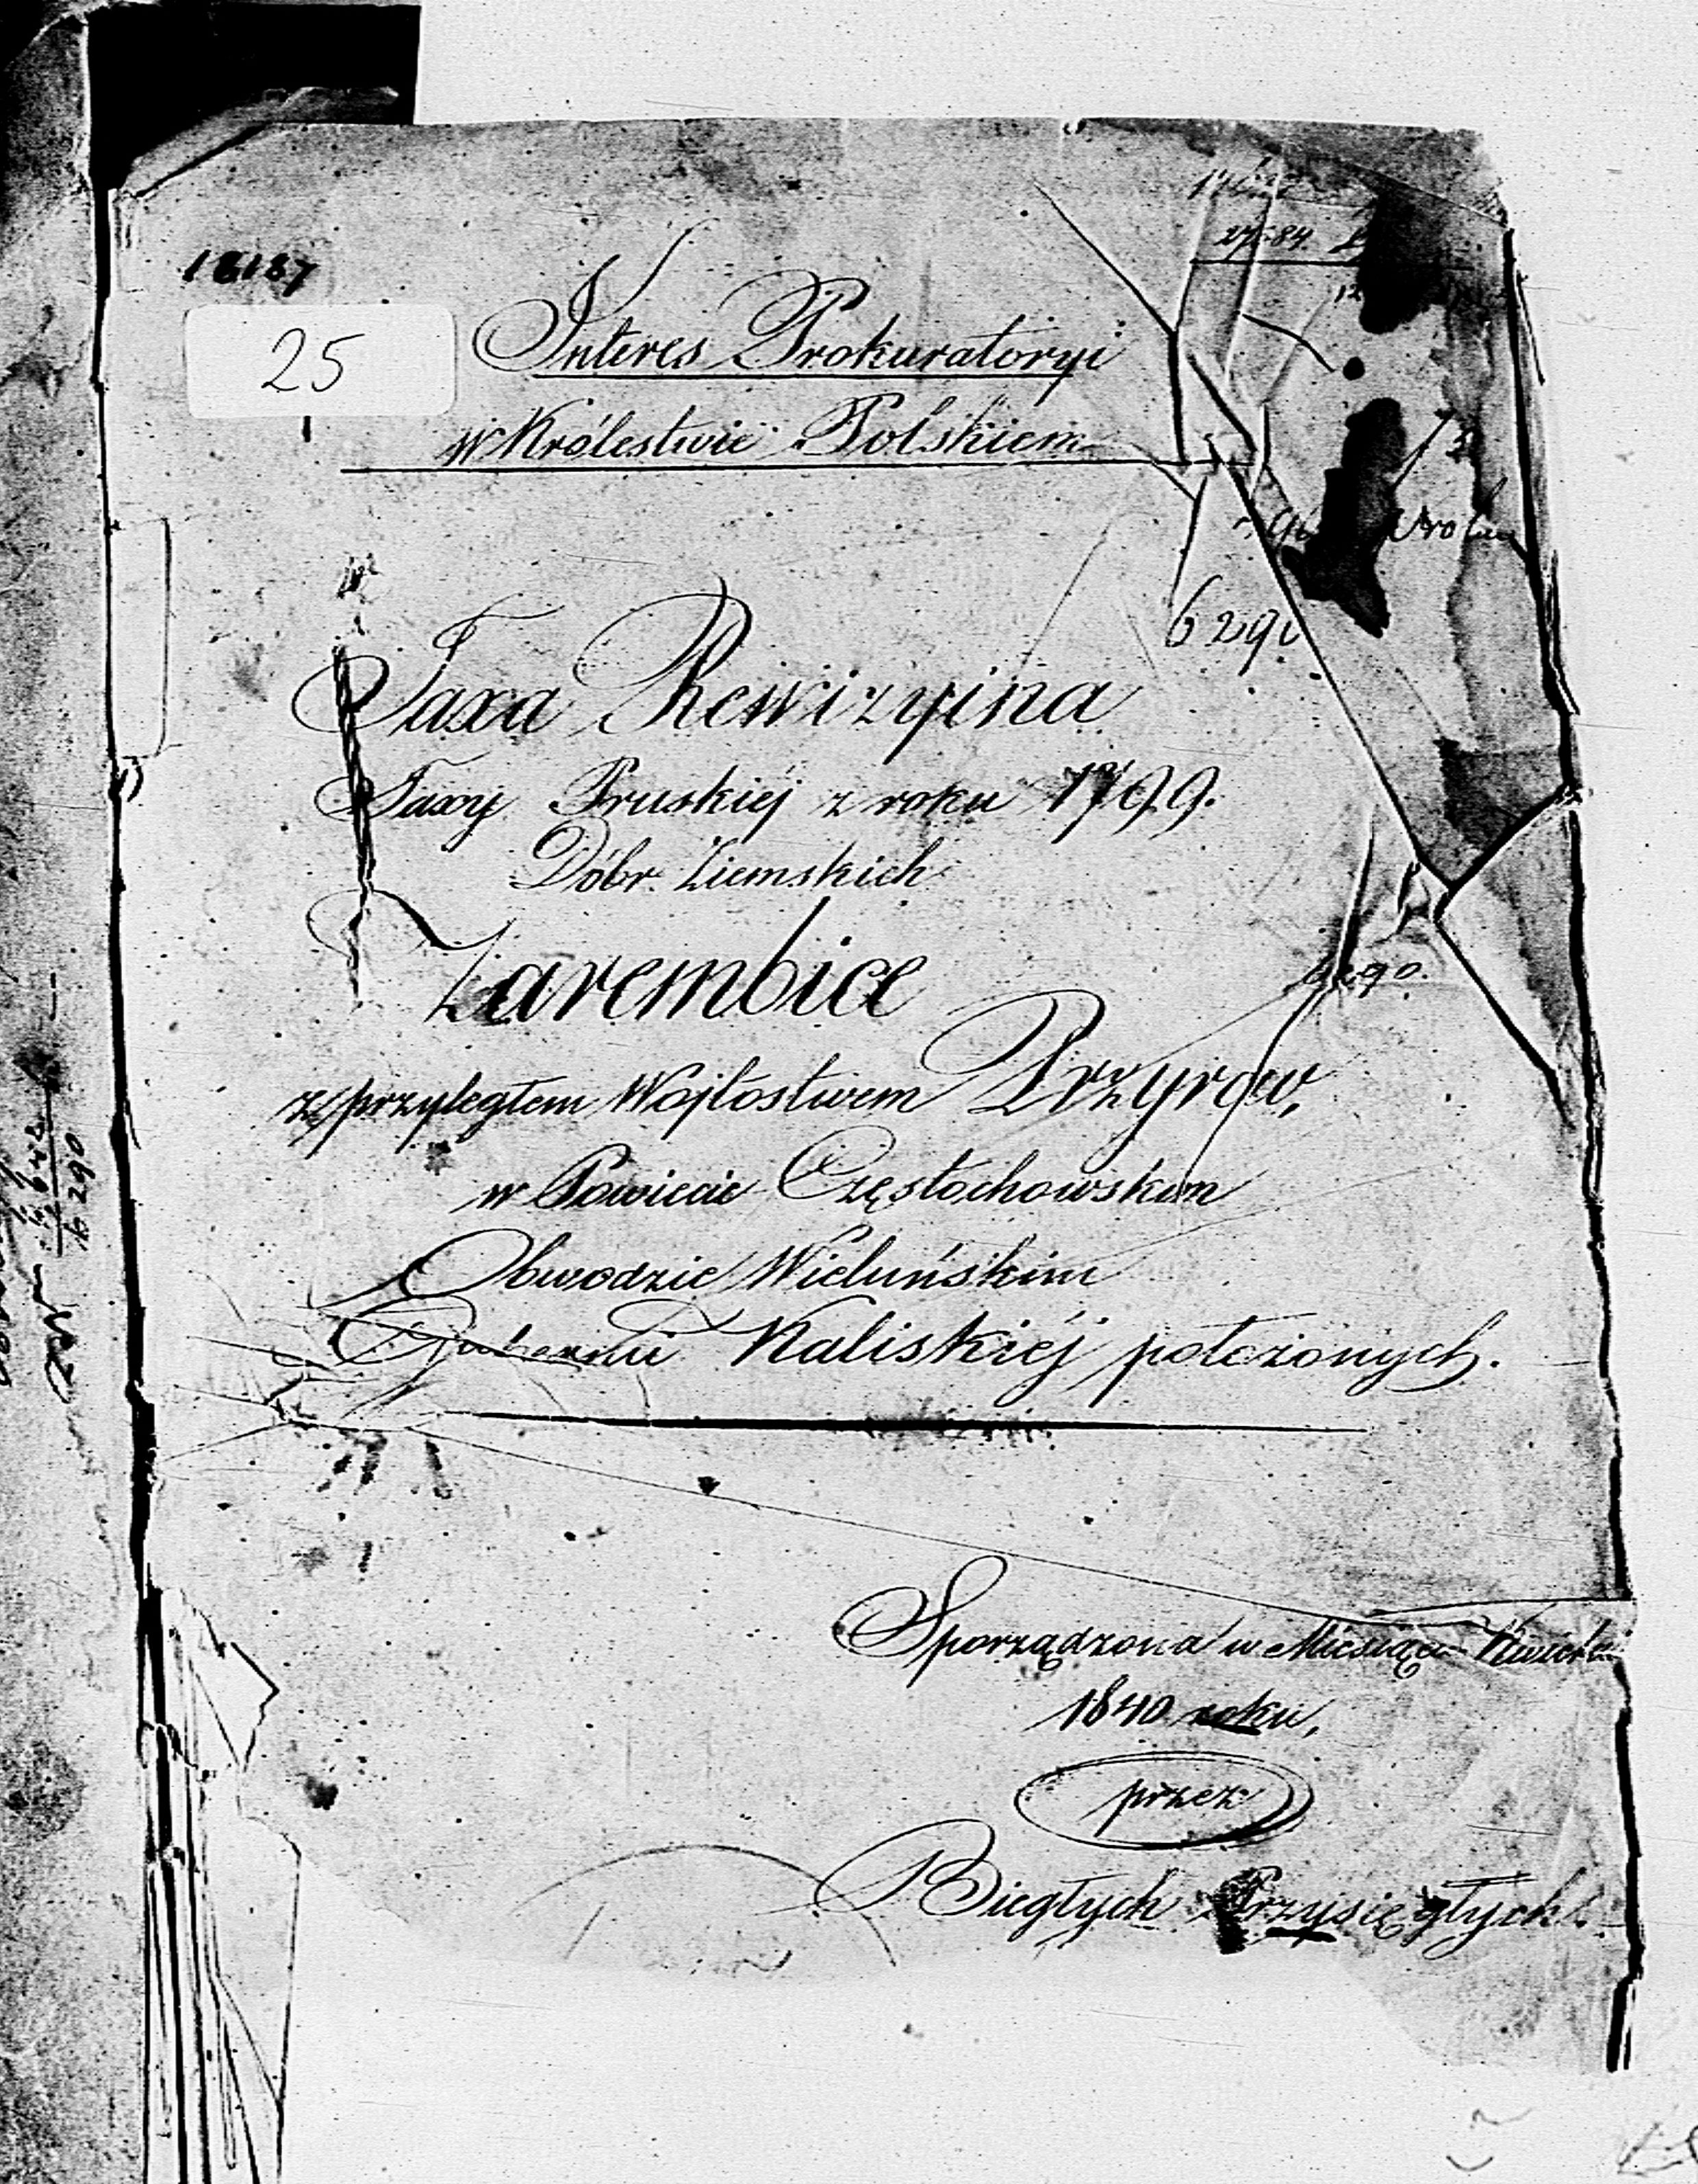 18187
27.84.
25
Interes Prokuratoryi
w Królestwie Polskiem
6290
Taxa Rewizyina
Taxy Pruskiéj z roku 1799.
Dóbr Ziemskich
Zarembice
z przyległem Wojtostwem Przyrow,
w Powiecie Częstochowskim
Obwodzie Wieluńskim
Gubernii Kaliskiéj położonych.
6290
Sporządzona w Miesiącu
1840 roku,
przez
Biegłych Przysięgłych.